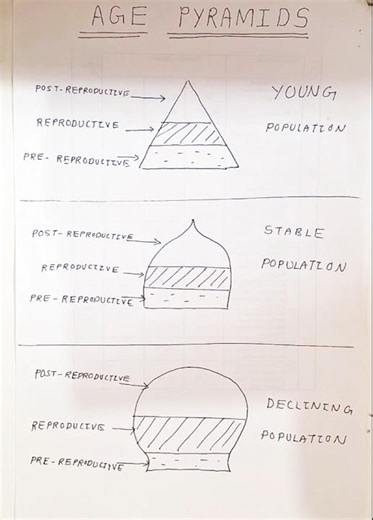 AGE PYRAMIDS
POST-REPRODUCTIVE
YOUNG
REPRODUCTIVE
POPULATION
PRE-REPRODUCTIVE
POST-REPRODUCTIVE
STABLE
REPRODUCTIVE
POPULATION
PRE-REPRODUCTIVE
POST-REPRODUCTIVE
DECLINING
REPRODUCTIVE
POPULATION
PRE-REPRODUCTIVE